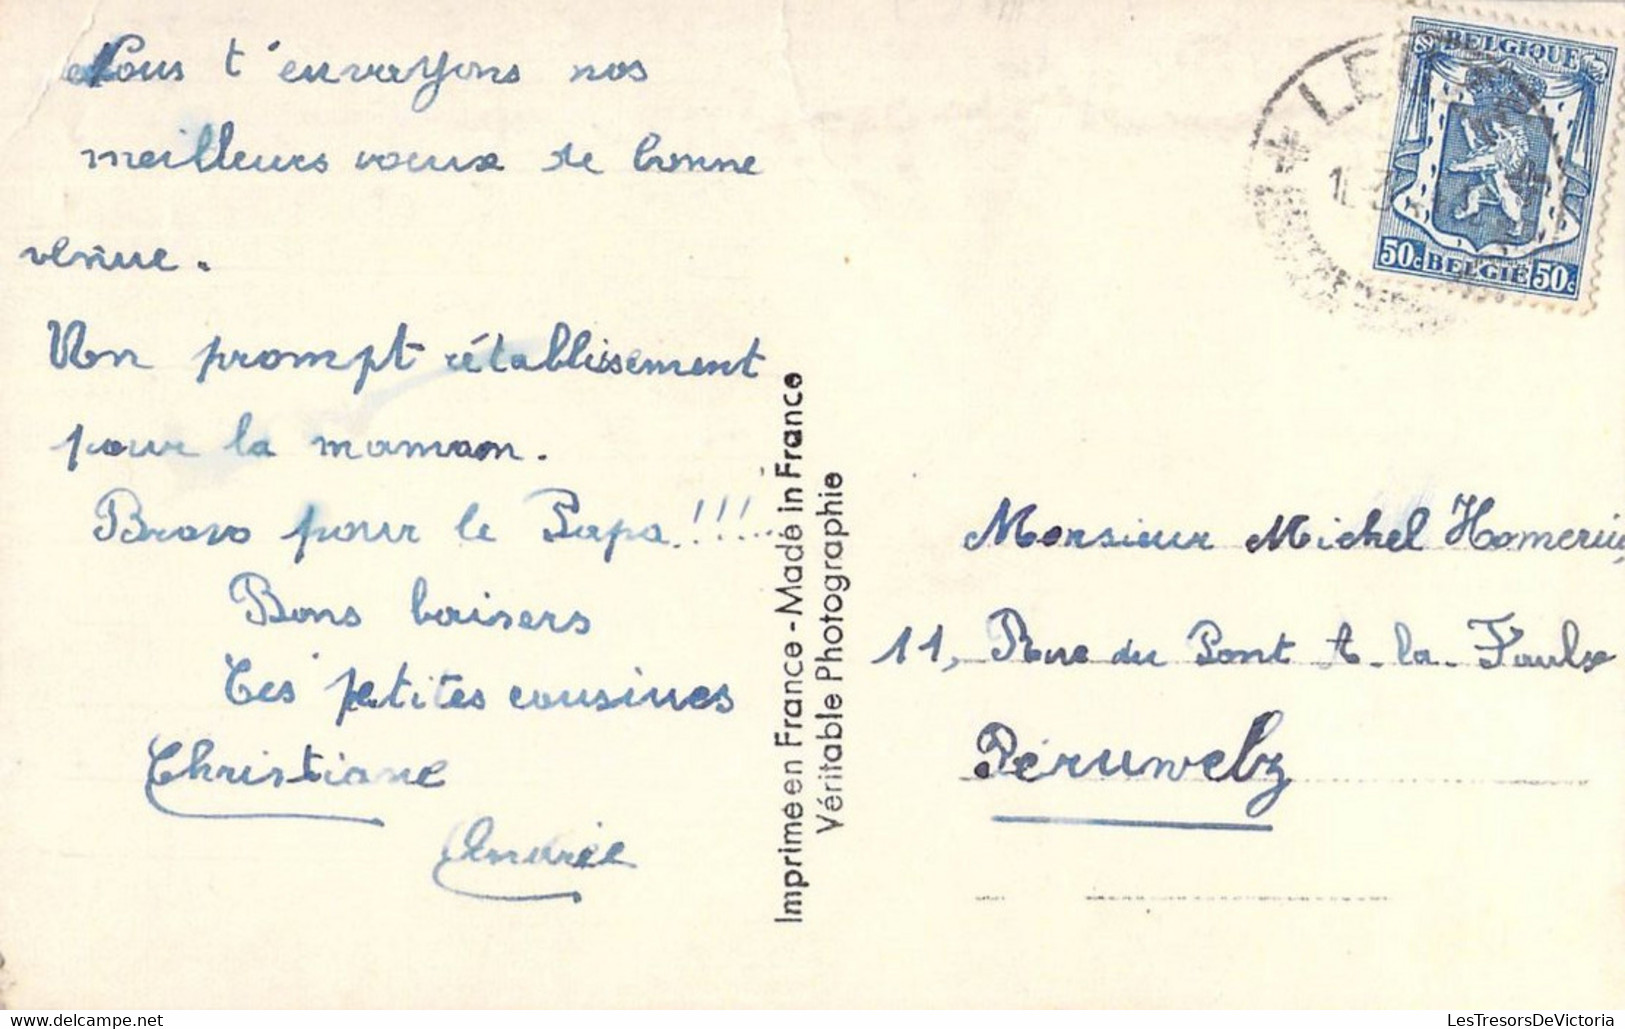 Nous t'envoyons nos
meilleurs voeux de bonne
venue.
Un prompt rétablissement
pour la maman.
Bravo pour le Papa!!!
Bons baisers
Tes petites cousines
Christiane
Andrée
Imprimé en France - Made in France
Véritable Photographie
BELGIQUE
50c BELGIË 50c
Monsieur Michel
11, Rue du Pont A-la-Faulx
Péruwelz
LesTresorsDeVictoria.com
LesTresorsDeVictoria